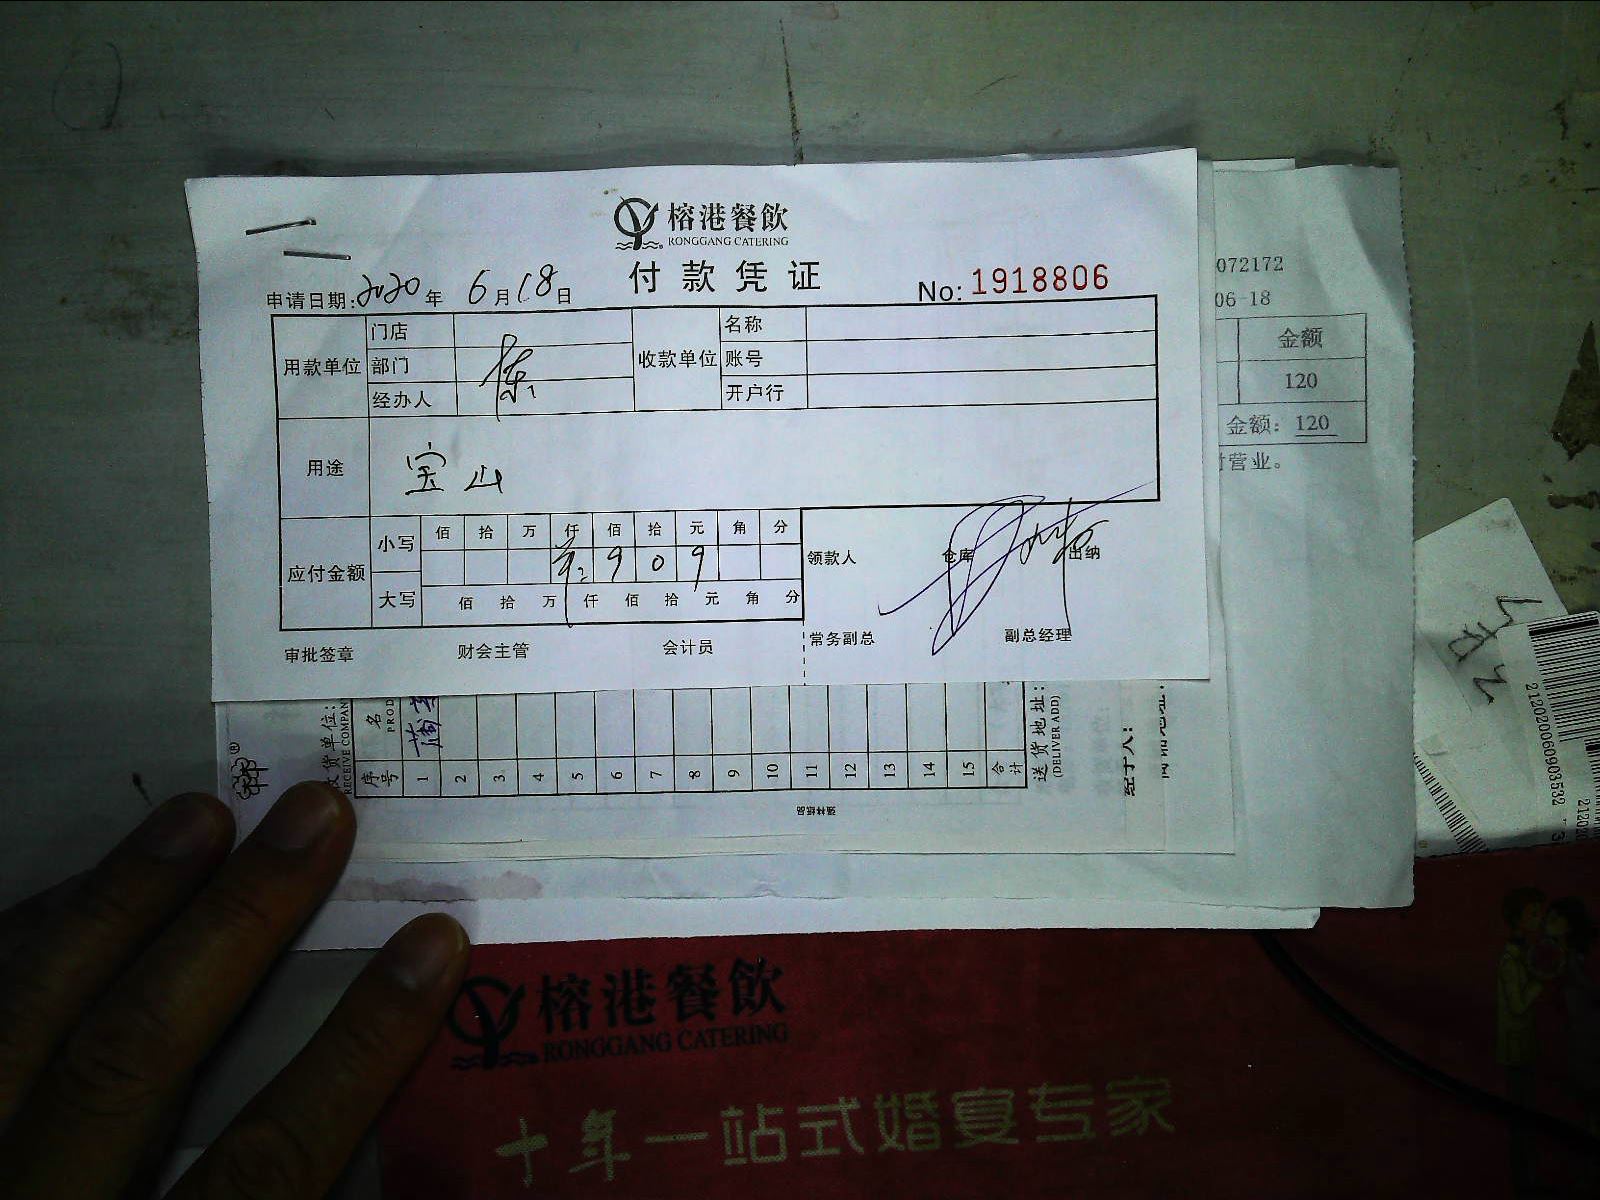 榕港餐飲
RONGGANG CATERING
付款凭证
申请日期:2020年 6月18日
No:1918806
用款单位 门店 收款单位 名称
部门 陈 账号
经办人 开户行
用途 宝山
应付金额 小写 佰 拾 万 仟 佰 拾 元 角 分
9 0 9
大写 佰 拾 万 仟 佰 拾 元 角 分
领款人 仓库 出纳
审批签章 财会主管 会计员 常务副总 副总经理
072172
06-18
金额
120
金额：120
营业。
收货单位:
RECEIVE COMPAN
序号 1 2 3 4 5 6 7 8 9 10 11 12 13 14 15 合计
名
PROD
送货地址:
(DELIVER ADD)
经手人:
212020060903532
榕港餐飲
RONGGANG CATERING
十年一站式婚宴专家